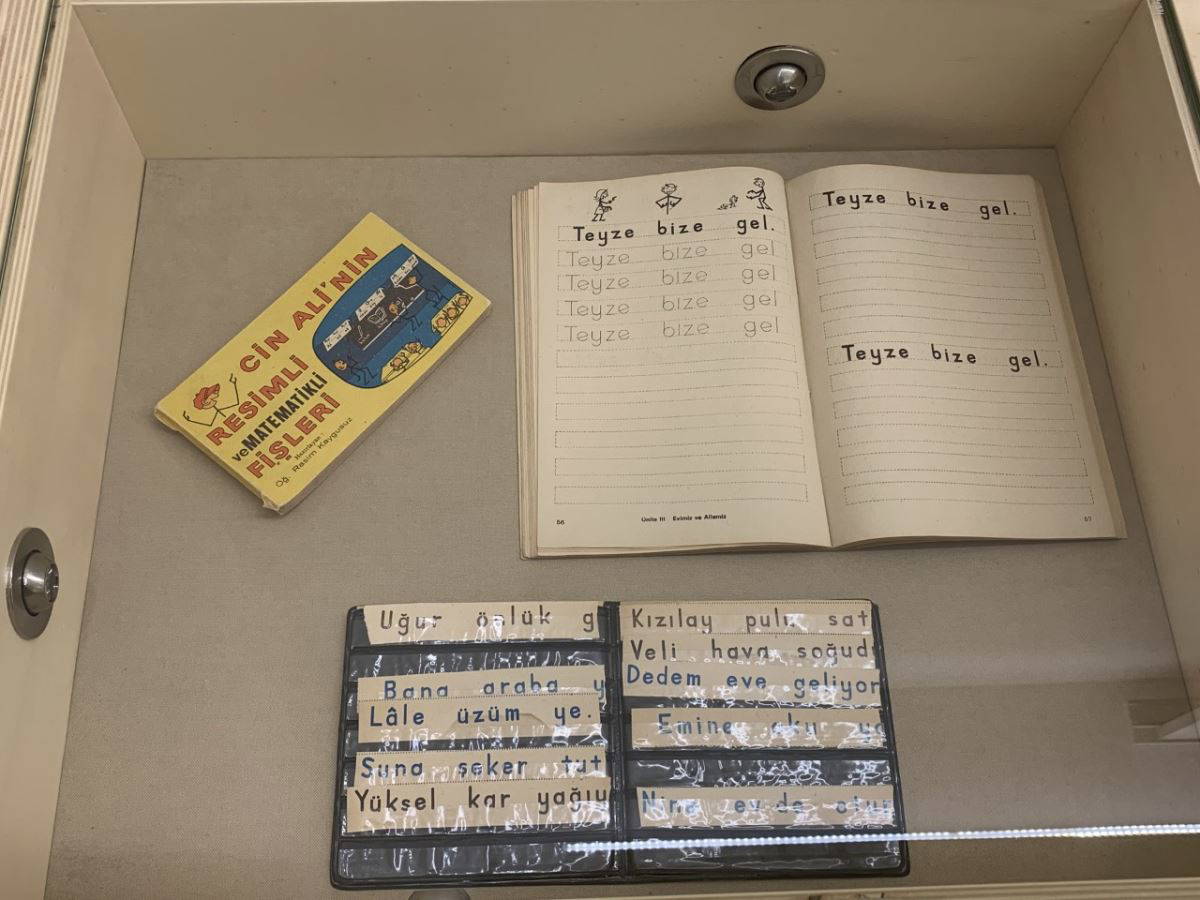 CİN ALİ'NİN
RESİMLİ
ve MATEMATİKLİ
FİŞLERİ
Hazırlayan:
Öğ. Rasim Kaygusuz
Teyze bize gel.
Teyze bize gel
Teyze bize gel
Teyze bize gel
Teyze bize gel
56 Ünite III Evimiz ve Ailemiz
Teyze bize gel.
Teyze bize gel.
57
Uğur önlük g
Bana araba y
Lâle üzüm ye.
Suna şeker tut
Yüksel kar yağıy
Kızılay pulu sat
Veli hava soğudu
Dedem eve geliyor
Emine oku ya
Nine evde otur